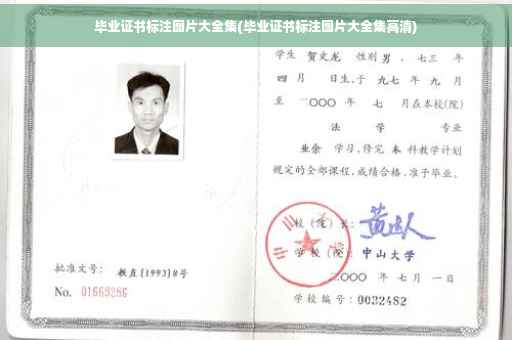 毕业证书标注图片大全集(毕业证书标注图片大全集高清)
学生 贺文龙 性别 男 、七三 年
四 月 日生,于 九七 年 九 月
至 二〇〇〇 年 七 月在本校(院)
法 学 专业
业余 学习,修完 本 科教学计划
规定的全部课程,成绩合格,准予毕业。
校(院)长:
学校(院): 中山大学
二〇〇〇 年 七 月 一 日
批准文号: 教直[1993]8号
No. 01669286
学校编号:0032482